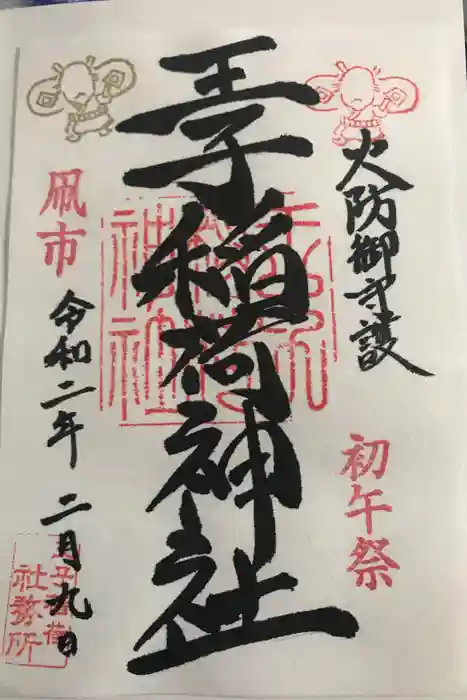 火防御守護
初午祭
王子稲荷神社
凧市
令和二年 二月九日
王子稲荷
社務所